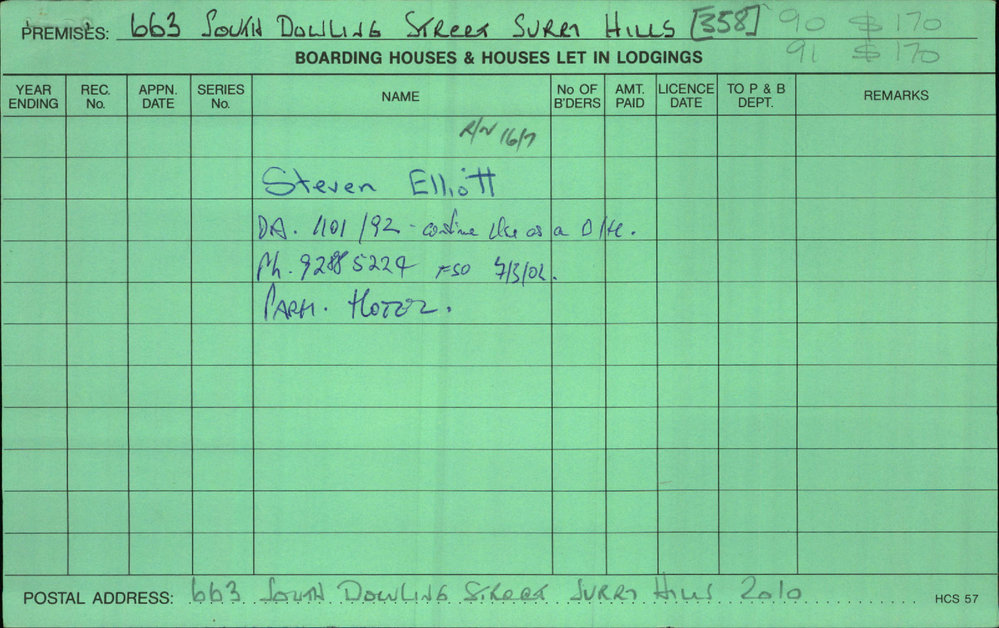 PREMISES: 663 SOUTH DOWLING STREET SURRY HILLS [358] 90 $170
91 $170
BOARDING HOUSES & HOUSES LET IN LODGINGS
YEAR ENDING REC. No. APPN. DATE SERIES No. NAME No OF B'DERS AMT. PAID LICENCE DATE TO P & B DEPT. REMARKS
R/N 16/7
Steven Elliott
DA. 1101/92 - continue Use as a
Ph. 9288 5224 FSO 7/3/02.
PARM. HOTEL.
POSTAL ADDRESS: 663 SOUTH DOWLING STREET SURRY HILLS 2010
HCS 57